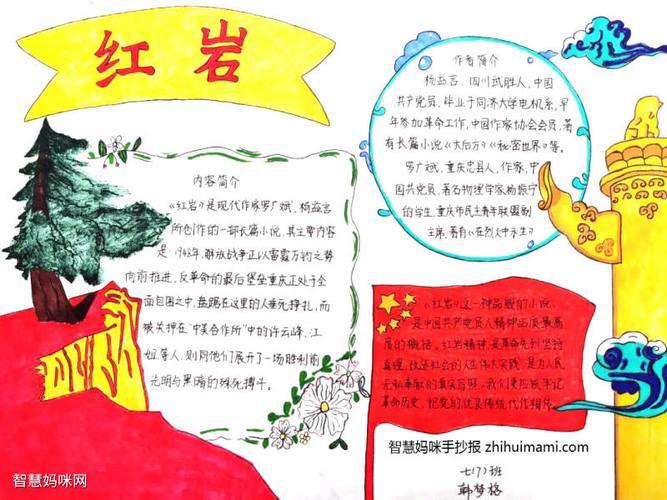 红岩
内容简介
《红岩》是现代作家罗广斌、杨益言
所创作的一部长篇小说,其主要内容
是:1948年,解放战争正以雷霆万钧之势
向前推进,反革命的最后堡垒重庆正处于全
面包围之中,盘踞在这里的人垂死挣扎,而
被关押在"中美合作所"中的许云峰、江
姐等人,则同他们展开了一场胜利前
光明与黑暗的殊死搏斗。
作者简介
杨益言,四川武胜人,中国
共产党员,毕业于同济大学电机系,早
年参加革命工作,中国作家协会会员,著
有长篇小说《大后方》《秘密世界》等。
罗广斌,重庆忠县人,作家,中
国共产党员,著名物理学家杨振宁
的学生,重庆市民主青年联盟副
主席,著有《在烈火中永生》
《红岩》这一种品貌的小说,
是中国共产党员人精神品质最高
度的概括,红岩精神,是革命先烈坚持
真理、改造社会的人生伟大实践,是为人民
无私奉献的真实写照。我们更应该牢记
革命历史,把党的优良传统代代相传
智慧妈咪手抄报 zhihuimami.com
七(7)班
韩梦格
智慧妈咪网